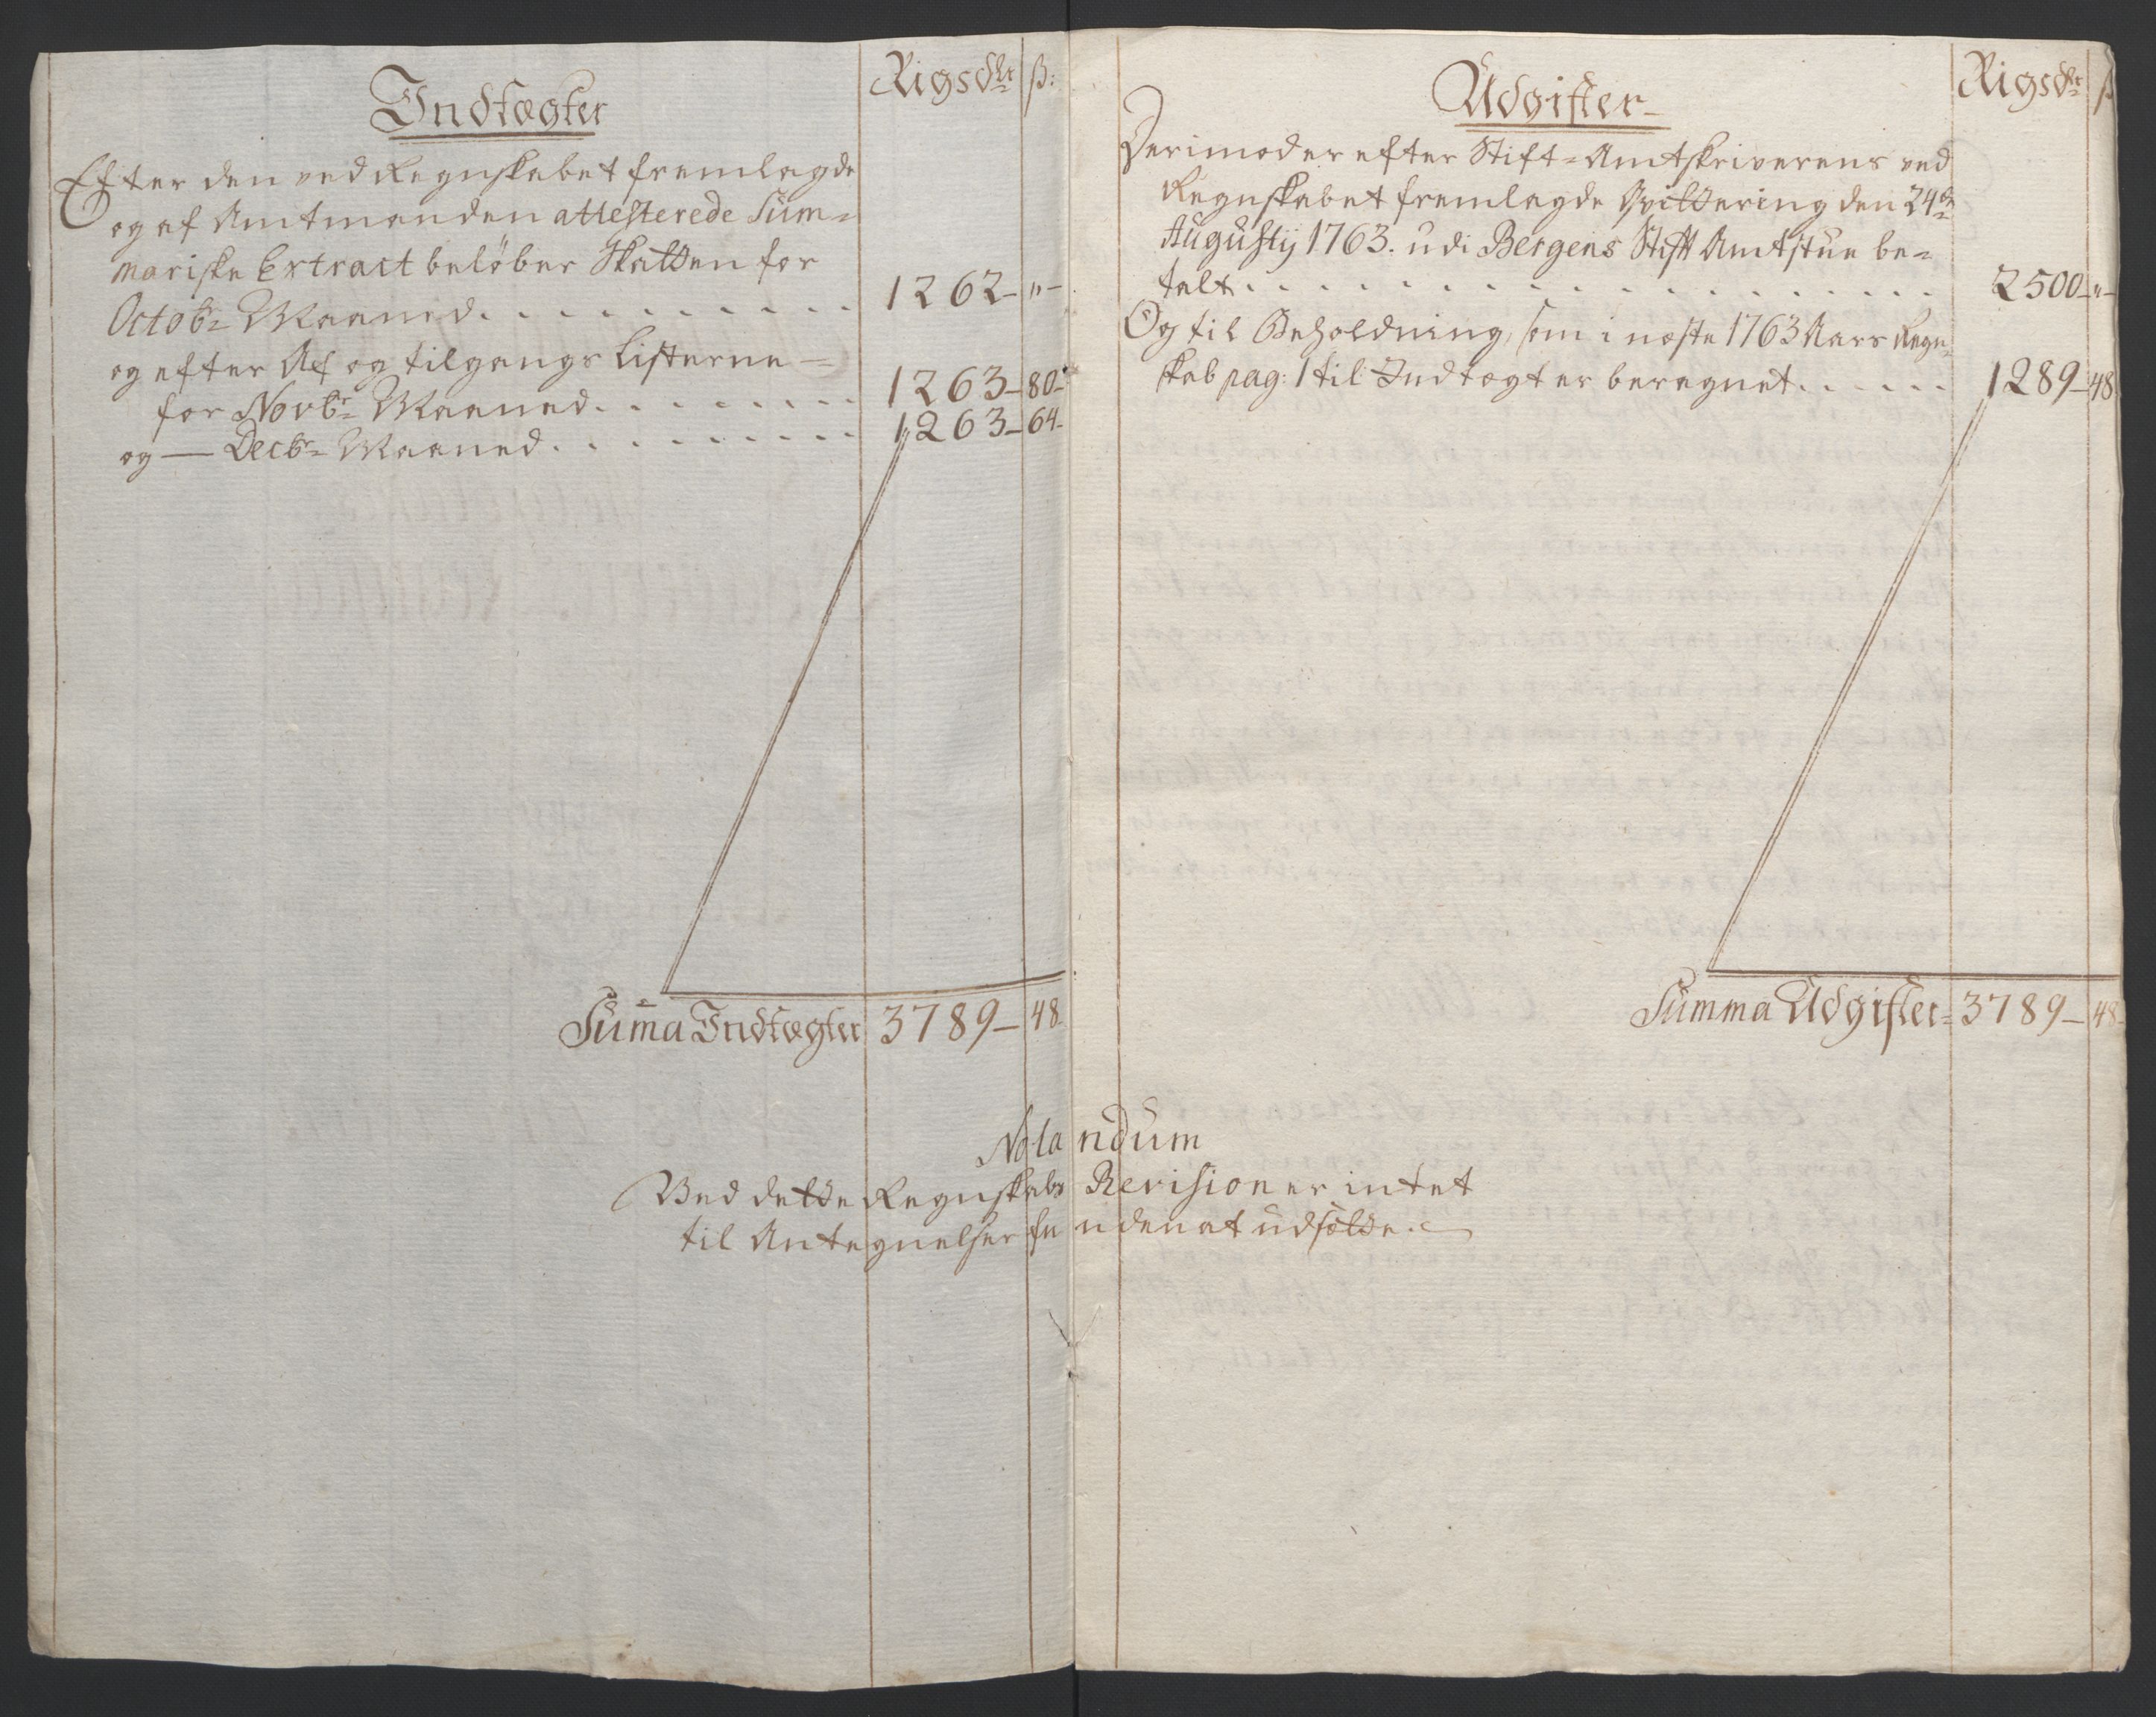 Indtægter
Rigsdlr ß:
Efter den ved Regnskabet fremlagde
og af Amtmanden attesterede Sum=
mariske Extract beløber Skatten for
Octobr= Maaned . . . . . . . . . . 1262 – " –
og efter Af og tilgangs Listerne =
for Novbr= Maaned . . . . . . . . 1263 – 80 –
og — Decbr= Maaned . . . . . . . . . 1263 – 64 –
Sum̄a Indtægter 3789 – 48
Udgifter
Rigsdr ß
Derimod er efter Stift=Amtskriverens ved
Regnskabet fremlagde Qvittering den 24de
Augustij 1763. udi Bergens Stift Amtstue be=
talt . . . . . . . . . . . . . . . . 2500 – " –
Og til Beholdning, som i næste 1763 Aars Regn=
skab pag: 1 til Indtægt er beregnet . . . . . 1289 – 48
Summa Udgifter= 3789 – 48
Notandum
Ved dette Regnskabs Revision er intet
til Antegnelser funden at udsætte.